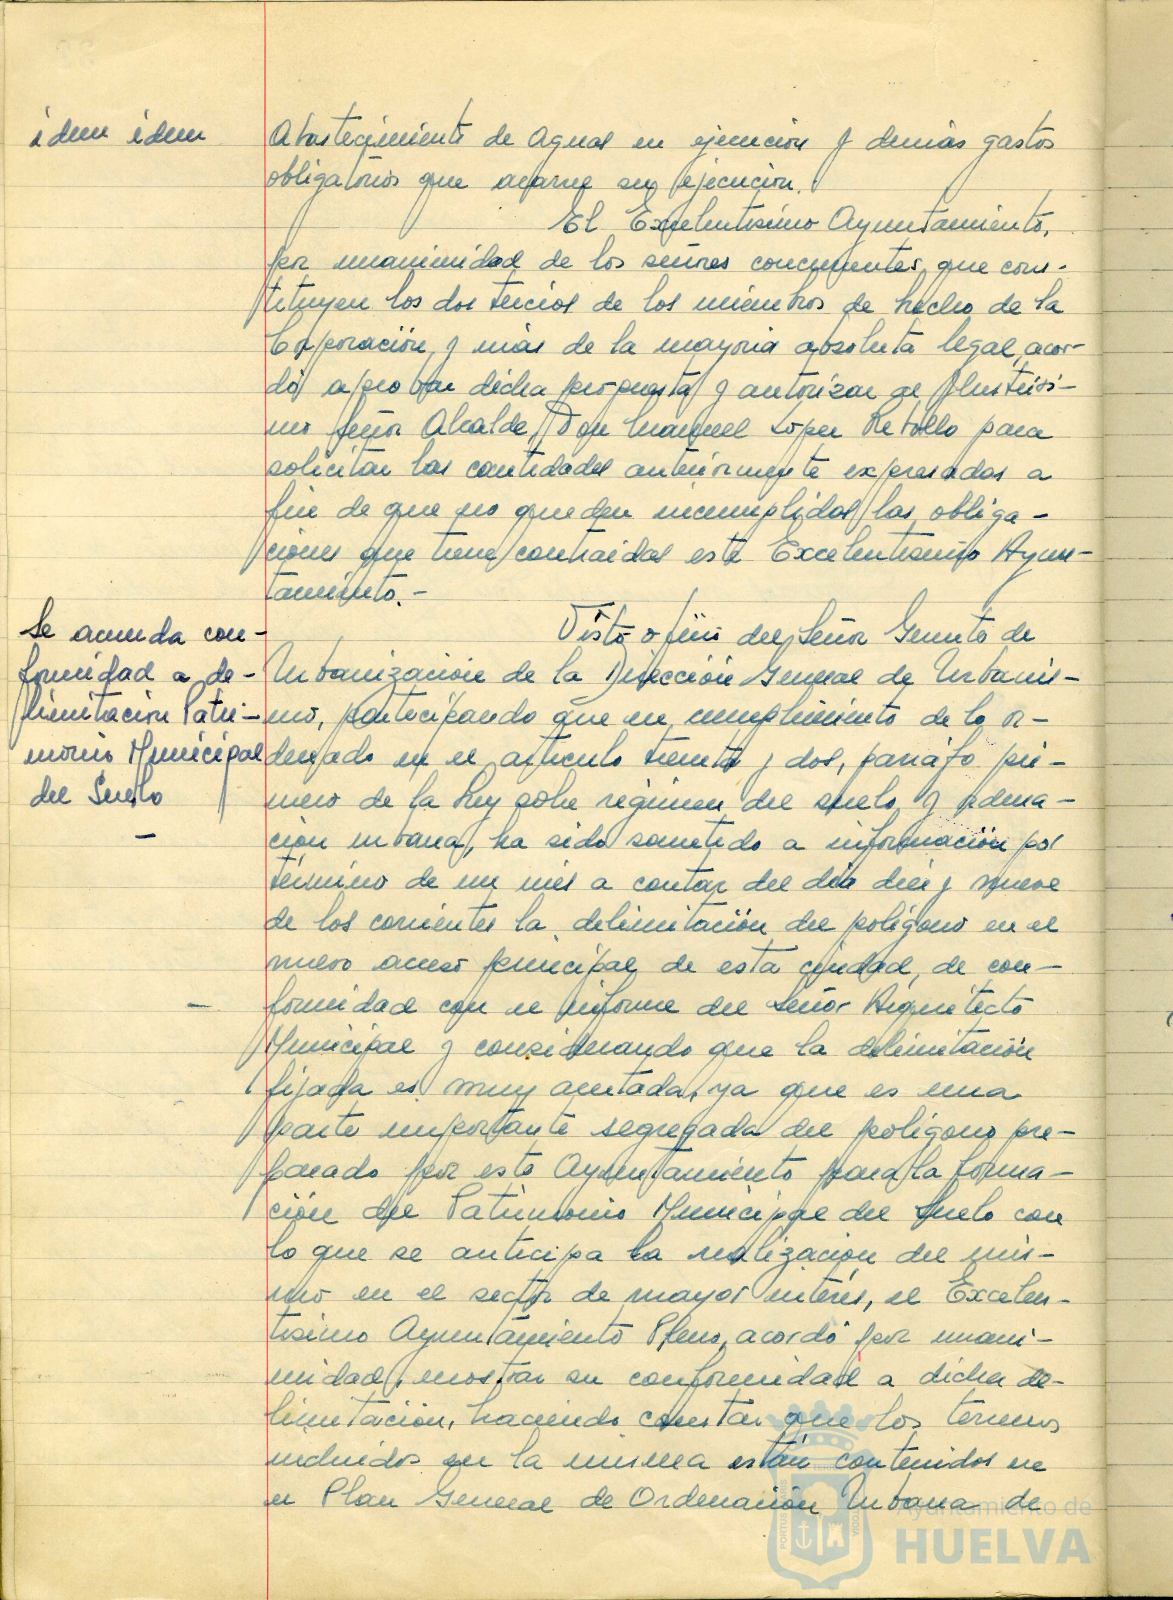 idem idem
Abastecimiento de Aguas en ejecución y demás gastos
obligatorios que acarree su ejecución.
El Excelentísimo Ayuntamiento,
por unanimidad de los señores concurrentes, que cons-
tituyen los dos tercios de los miembros de hecho de la
Corporación, y más de la mayoría absoluta legal, acor-
dó aprobar dicha propuesta y autorizar al Ilustrísi-
mo Señor Alcalde, Don Manuel López Rebollo para
solicitar las cantidades anteriormente expresadas a
fin de que no queden incumplidas las obliga-
ciones que tiene contraidas este Excelentísimo Ayun-
tamiento.-
Se acuerda con-
formidad a de-
limitación Patri-
monio Municipal
del Suelo
-
Visto oficio del Señor Gerente de
Urbanización de la Dirección General de Urbanis-
mo, participando que en cumplimiento de lo or-
denado en el artículo treinta y dos, párrafo pri-
mero de la Ley sobre régimen del suelo y ordena-
ción urbana, ha sido sometido a información por
término de un mes a contar del día diez y nueve
de los corrientes la delimitación del polígono en el
nuevo acceso principal de esta ciudad, de con-
formidad con el informe del Señor Arquitecto
Municipal y considerando que la delimitación
fijada es muy acertada, ya que es una
parte importante segregada del polígono pre-
parado por este Ayuntamiento para la forma-
ción del Patrimonio Municipal del Suelo con
lo que se anticipa la realización del mis-
mo en el sector de mayor interés, el Excelen-
tísimo Ayuntamiento Pleno, acordó por unani-
midad, mostrar su conformidad a dicha de-
limitación, haciendo constar que los terrenos
incluidos en la misma están contenidos en
el Plan General de Ordenación Urbana de
Ayuntamiento de
HUELVA